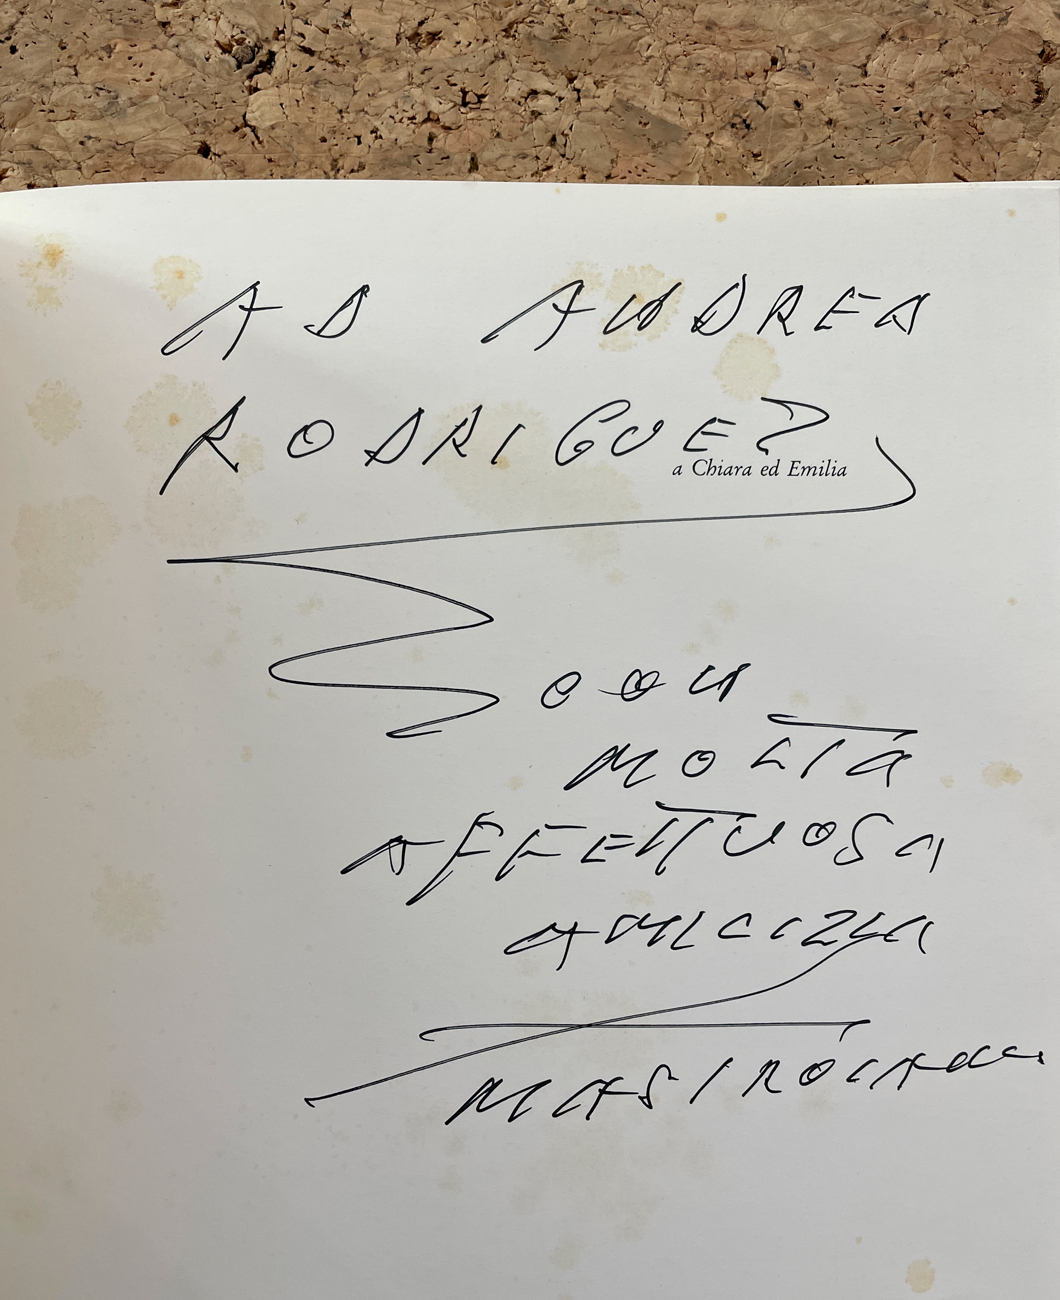 AD ANDREA
RODRIGUEZ
a Chiara ed Emilia
CON
MOLTA
AFFETTUOSA
AMICIZIA